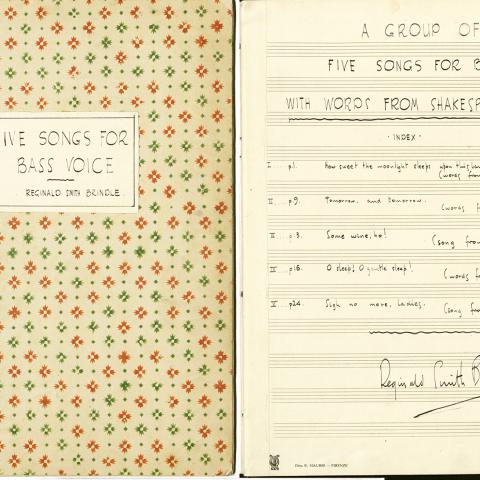 IVE SONGS FOR
BASS VOICE
REGINALD SMITH BRINDLE
A GROUP OF
FIVE SONGS FOR B
WITH WORDS FROM SHAKESP
· INDEX ·
I p1. How sweet the moonlight sleeps upon this ban
(words from
II p9. Tomorrow. and tomorrow. (words f
p13. Some wine, ho! (song from
IV p16. O sleep! O gentle sleep! (words fr
V p24. Sigh no more, ladies. (song fro
Reginald Smith B
Ditta R. MAURRI - FIRENZE